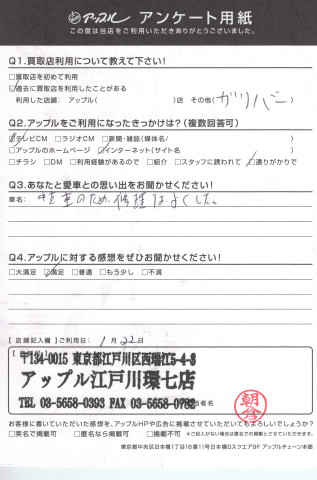 アップル アンケート用紙
この度は当店をご利用いただきありがとうございました。
Q1.買取店利用について教えて下さい!
□買取店を初めて利用
☑過去に買取店を利用したことがある
利用した店舗: アップル( )店 その他(ガリバー)
Q2.アップルをご利用になったきっかけは?(複数回答可)
☑テレビCM □ラジオCM □新聞・雑誌(媒体名/ )
□アップルのホームページ □インターネット(サイト名 )
□チラシ □DM □利用経験があるので □紹介 □スタッフに誘われて ☑通りがかりで
Q3.あなたと愛車との思い出をお聞かせください!
車名:
Q4.アップルに対する感想をぜひお聞かせください!
□大満足 ☑満足 □普通 □もう少し □不満
【店舗記入欄】ご利用日: 1月22日
〒134-0015 東京都江戸川区西瑞江5-4-3
アップル江戸川環七店
TEL 03-5658-0393 FAX 03-5658-0782
当者名 朝倉
お客様に書いていただいた感想を、アップルHPや広告に掲載させていただいてもよろしいでしょうか?
□実名で掲載可 □匿名なら掲載可 □掲載不可 ※ご記入がない場合は匿名での掲載とさせていただきます。
東京都中央区日本橋1丁目16番11号日本橋Dスクエア9F アップルチェーン本部